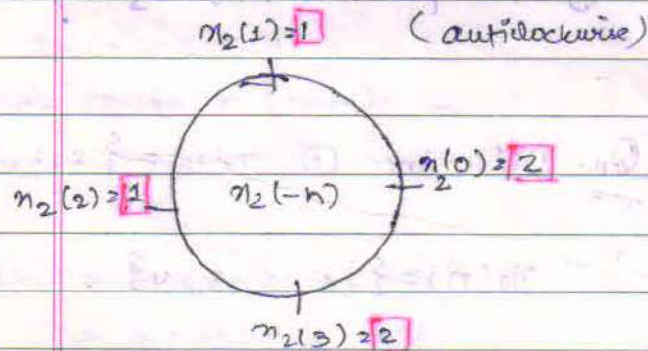 x₂(1) = 1 (anticlockwise)
x₂(0) = 2
x₂(2) = 1 x₂(-n)
x₂(3) = 2